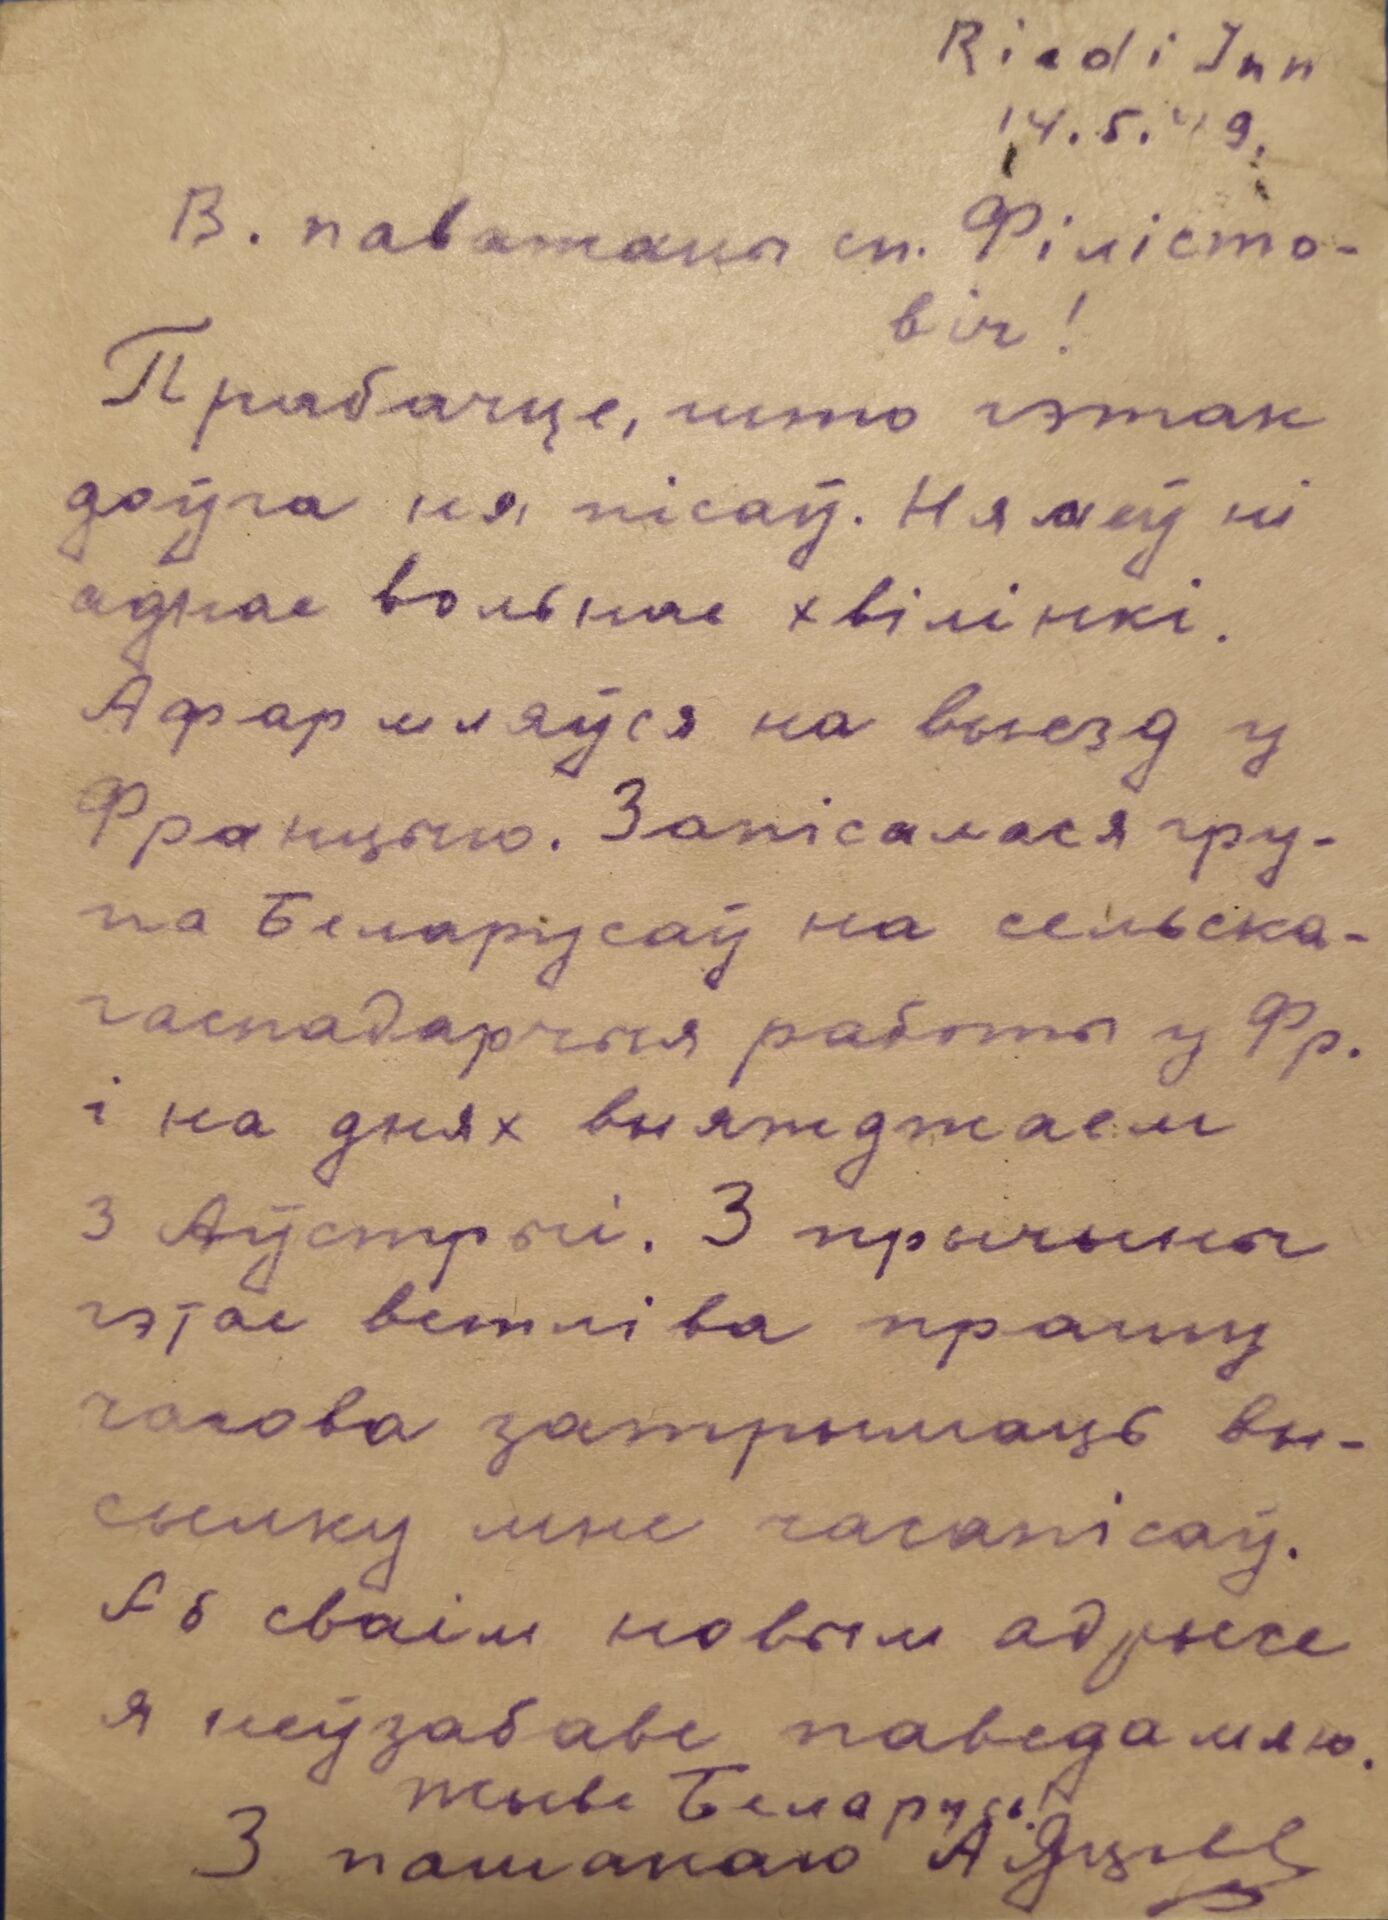 Ried i Inn
14.5.49.
В. паважаны сп. Філісто-
віч!
Прабачце, што гэтак
доўга ня пісаў. Ня меў ні
аднае вольнае хвілінкі.
Афармляўся на выезд у
Францыю. Запісалася гру-
па Беларусаў на сельска-
гаспадарчыя работы у Фр.
і на днях выяжджаем
з Аўстрыі. З прычыны
гэтае ветліва прашу
часова затрымаць вы-
сылку мне часапісаў.
Аб сваім новым адрысе
я неўзабаве паведамляю.
Жыве Беларусь!
З пашанаю А.